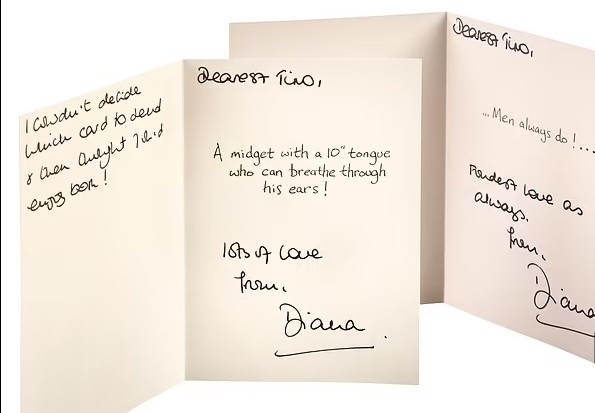 I couldn't decide
which card to send
& then thought I'd
enjoy both!
Dearest Tino,
A midget with a 10" tongue
who can breathe through
his ears!
lots of love
from,
Diana
Dearest Tino,
...Men always do!...
Fondest love as
always.
from,
Diana